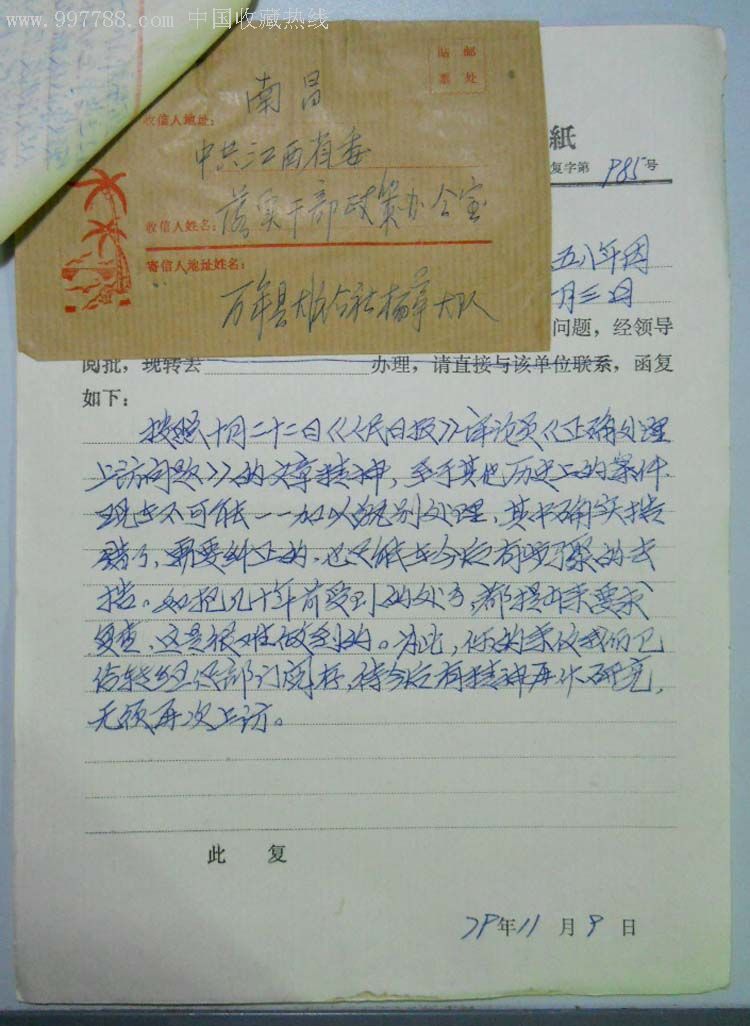 www.997788.com 中国收藏热线
贴 邮
票 处
南昌
收信人地址:
中共江西省委
收信人姓名: 落实干部政策办公室
寄信人地址姓名:
万年县 公社 大队
紙
复字第 985 号
五八年因
月三日
问题，经领导
阅批，现转去 办理，请直接与该单位联系，函复
如下：
按照十月二十二日《人民日报》评论员《正确处理
上访问题》的文章精神，至于其他历史上的案件
现在不可能一一加以甄别处理，其中确实搞
错了，需要纠正的，也只能在今后有步骤的去
搞。如把几十年前受到的处分，都提出来要求
复查，这是很难做到的。为此，你的来信我们已
转 部门阅存，待今后有精神再作研究，
无须再次上访。
此 复
79年11月9日